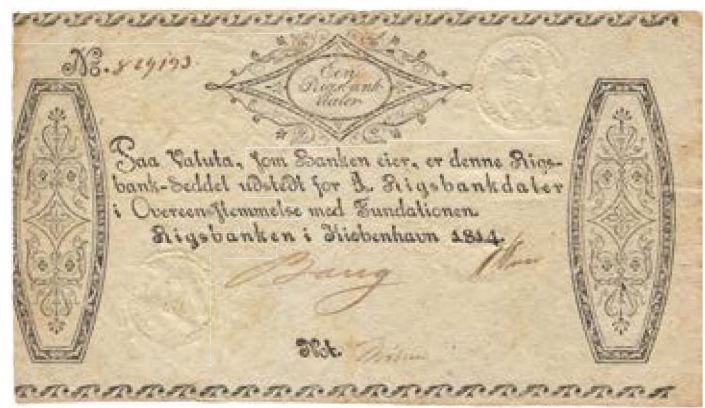 No. 829193.
Een
Rigsbank
daler
Paa Valuta, som Banken eier, er denne Rigs-
bank-Seddel udstedt for 1. Rigsbankdaler
i Overeensstemmelse med Fundationen
Rigsbanken i Kiøbenhavn 1814.
Bang
Not.